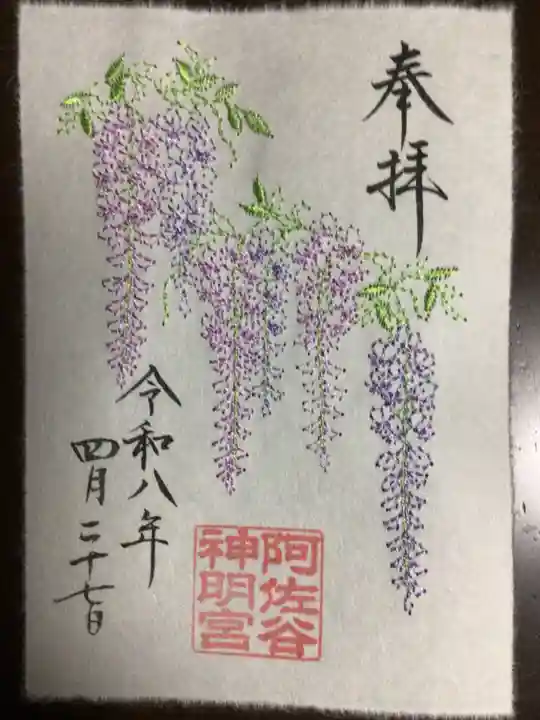 奉拝
阿佐谷
神明宮
令和八年
四月二十七日